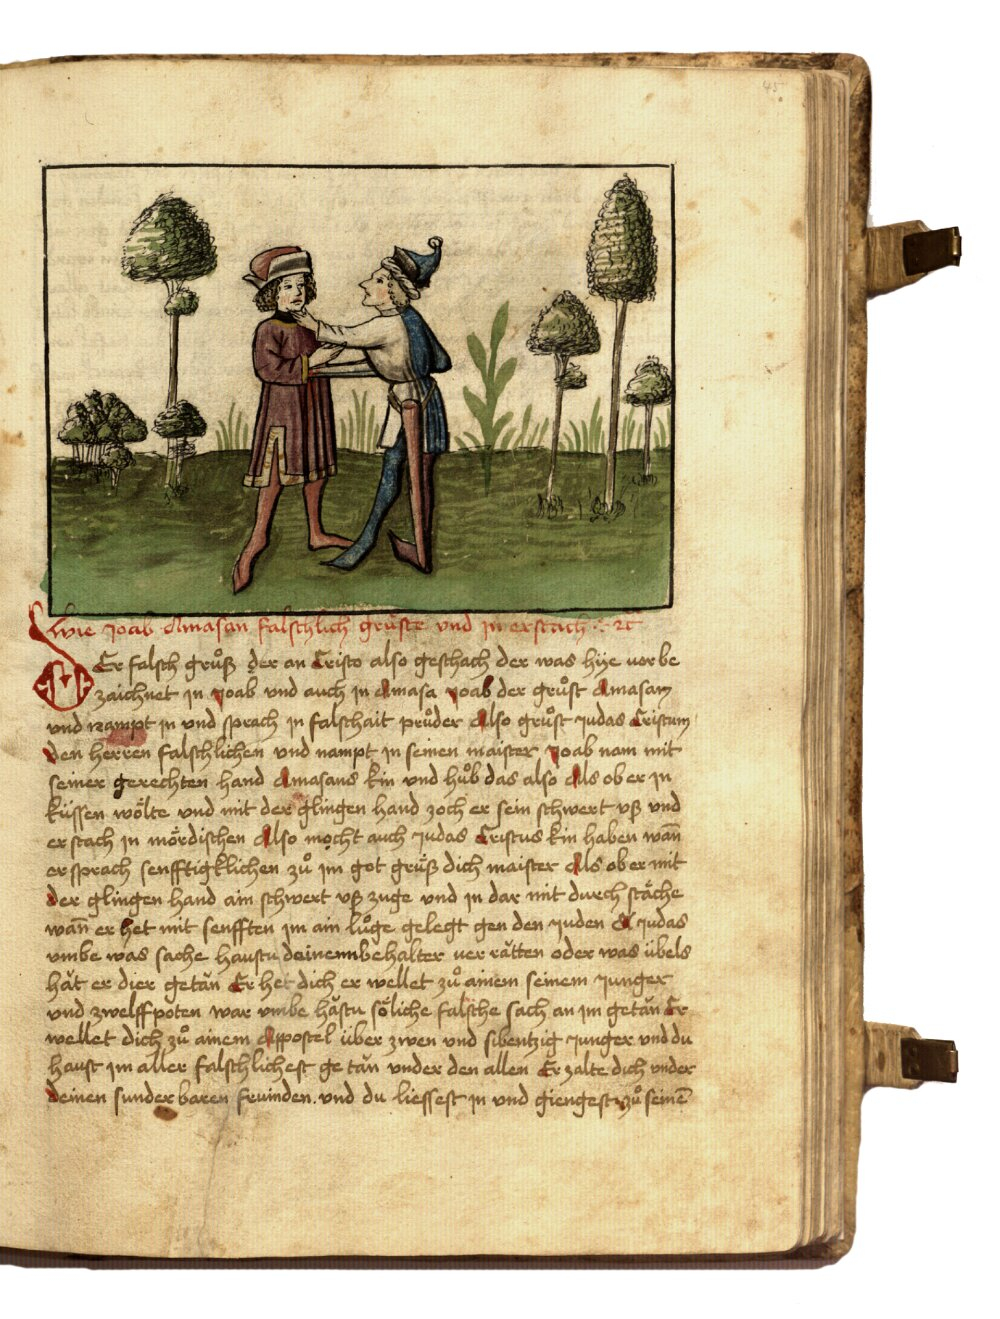 45
wie Joab Amasan falschlich grůste und in erstach ⁘ ꝛc
Er falsch grůß der an Cristo also geschach der was hye vor be
zaichnet in Joab vnd auch in Amasa Joab der grůst Amasan
vnd nampt in vnd sprach in falschait průder Also grůst Judas Cristum
den herren falschlichen vnd nampt in seinen maister Joab nam mit
seiner gerechten hand Amasans kin vnd hůb das also Als ob er in
küssen wölte vnd mit der glingen hand zoch er sein schwert vß vnd
er stach in mördischen Also mocht auch Judas Cristus kin haben wañ
er sprach senfftigklichen zů im got grůß dich maister Als ob er mit
der glingen hand ain schwert vß zuge vnd in dar mit durch stäche
wañ er het mit senfften im ain lůge gelegt gen den Juden O Judas
vmbe was sache haustu deinenn behalter ver rätten oder was übels
hät er dier getän Er het dich er wellet zů ainem seinem Junger
vnd zwelffpoten war vmbe hästu söliche falsche sach an im getän Er
wellet dich zů ainem Appostel über zwen vnd sibentzig Junger vnd du
haust im aller falschlichest ge tän vnder den allen Er zalte dich vnder
deinen sunder baren fruinden vnd du liessest in vnd giengest zů seinē